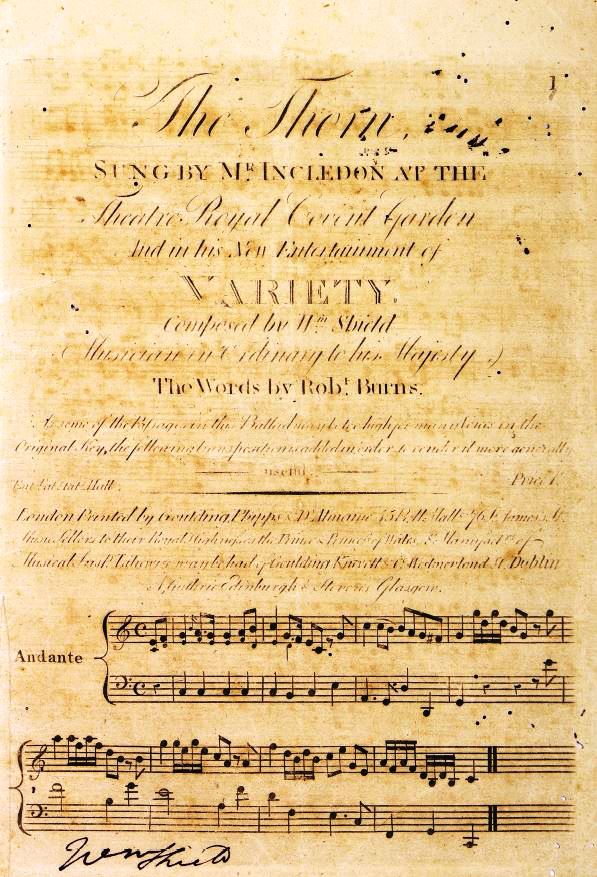 1
The Thorn,
SUNG BY MR. INCLEDON AT THE
Theatre Royal Covent Garden
And in his New Entertainment of
VARIETY.
Composed by Wm. Shield
(Musician in Ordinary to his Majesty.)
The Words by Robt. Burns.
As some of the Passages in this Ballad may be too high for many Voices in the
Original Key, the following transposition is added in order to render it more generally
useful.
Ent. at Stat. Hall. Price 1s.
London Printed by Goulding Phipps & D'Almaine 45 Pall Mall & 76 St. James's St.
Music Sellers to their Royal Highnesses the Prince & Princess of Wales, & Manufactrs. of
Musical Likewise may be had of Goulding Knevett & Co. Westmorland St. Dublin
Guthrie Edinburgh & Stevens Glasgow.
Andante
Wm Shield